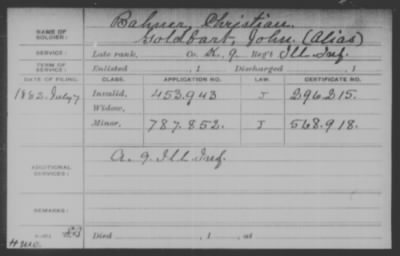 NAME OF SOLDIER: Bahner, Christian.
Goldbart, John (Alias)
SERVICE: Late rank, Co. K, 9 Reg't Ill Inf.
TERM OF SERVICE: Enlisted , 1 Discharged , 1
DATE OF FILING. CLASS. APPLICATION NO. LAW. CERTIFICATE NO.
1882 July 7 Invalid, 453.943 J 296.215.
Widow,
Minor, 787.852. J 568.918.
ADDITIONAL SERVICES: A. 9 Ill Inf.
REMARKS:
Died , 1 , at